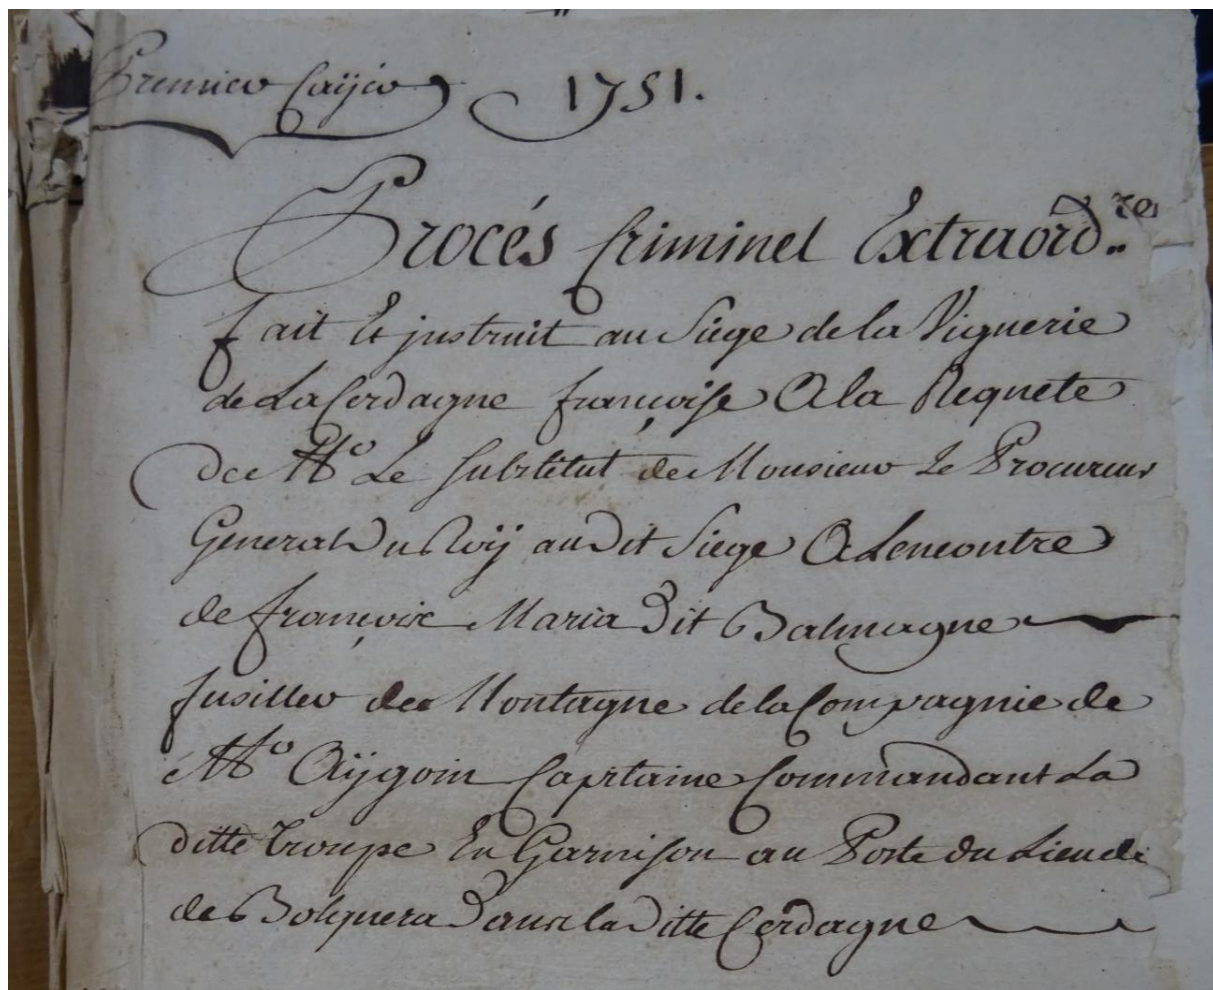 Premier Cayer 1751.
Procés Criminel Extraord.re
fait Et justruit au Siege de la Viguerie
de La Cerdagne françoise A la Requete
de Mr Le Substitut de Monsieur Le Procureur
General Du Roÿ au Dit Siege A Lencontre
de françoix Maria Dit Balmagne
fusiller de Montagne de la Compagnie de
Mr Aÿgoin Capitaine Commandant La
ditte troupe En Garnison au Poste du Lieu de
de Bolquera Dans la Ditte Cerdagne